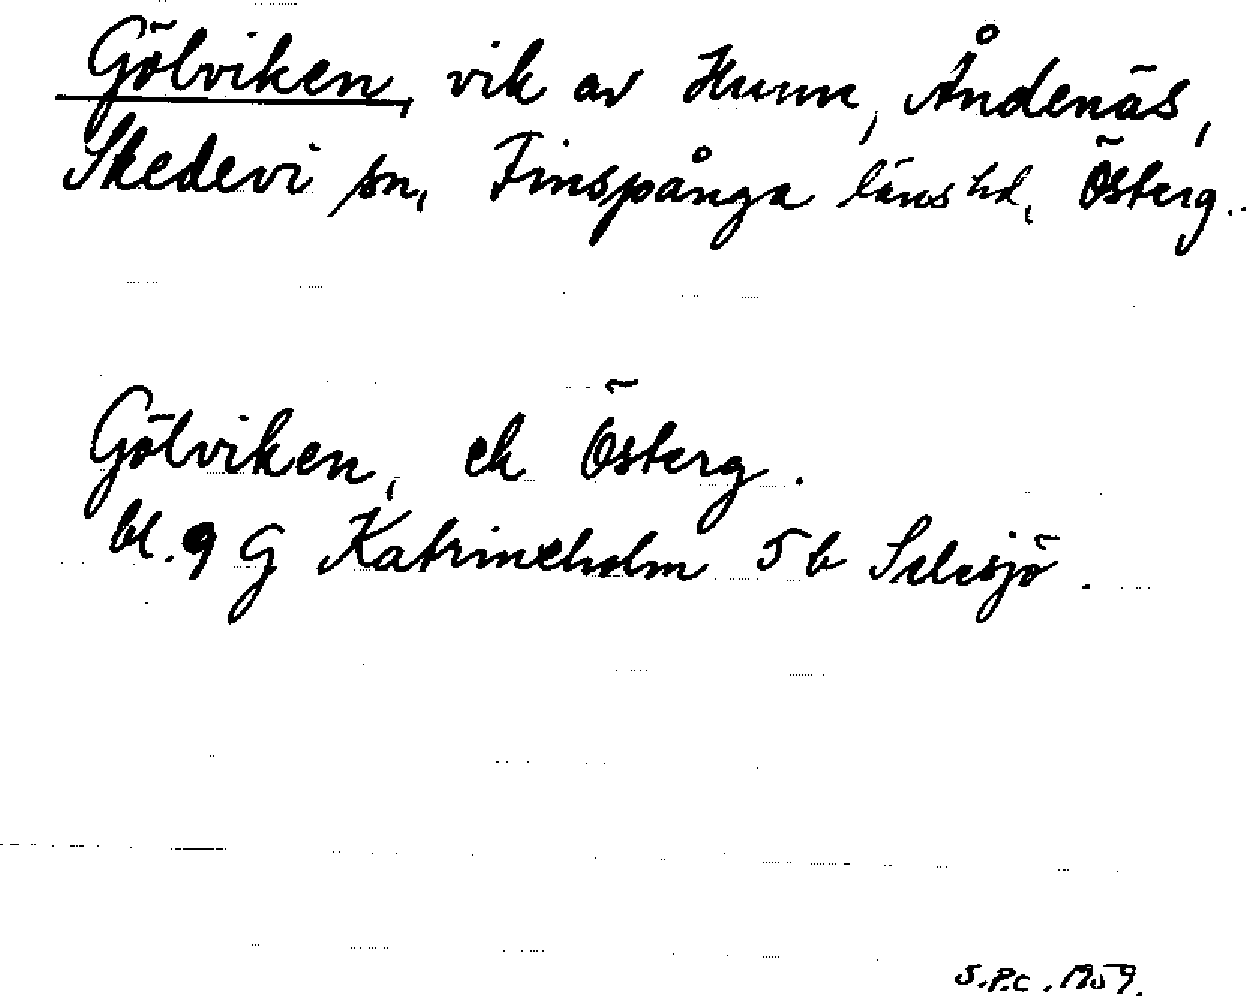 Gölviken, vik av Hunn, Åndenäs,
Skedevi sn, Finspånga läns hd, Österg.
Gölviken, ek Österg.
bl. 9 G Katrineholm 5 b Selesjö.
S.P.C. 1959.